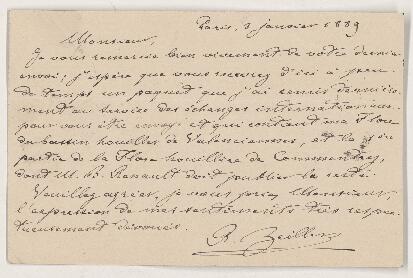 Paris, 3 janvier 1889
Monsieur,
Je vous remercie bien vivement de votre dernier
envoi; j'espère que vous recevrez d'ici à peu
de temps un paquet que j'ai remis dernière-
ment au service des échanges internationaux
pour vous être envoyé et qui contient ma Flore
du bassin houiller de Valenciennes, et la
partie de la Flore houillère de Commentry,
dont M. B. Renault doit publier la suite.
Veuillez agréer, je vous prie, Monsieur,
l'expression de mes sentiments très respec-
tueusement dévoués.
R. Zeiller